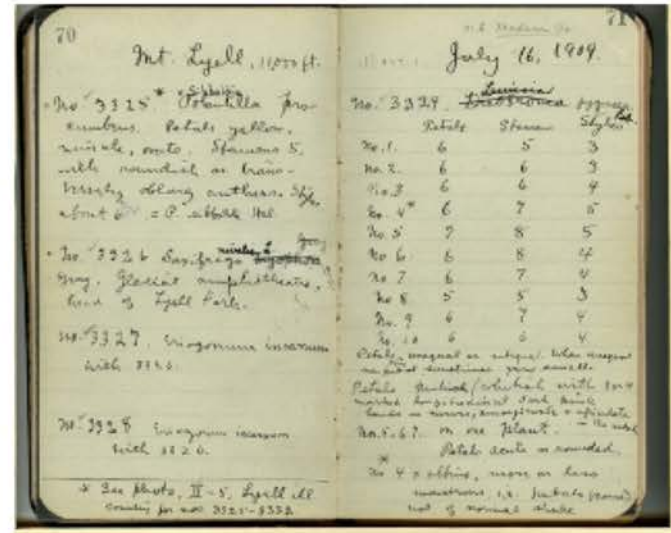 70
Mt. Lyell, 11,000 ft.
* Sibbaldia
No. 3325 Potentilla pro-
cumbens. Petals yellow,
minute, ovate. Stamens 5,
with roundish or trans-
versely oblong anthers. Style
about 6 = P. sibbaldi Hal
No. 3326 Saxifraga
Gray. Glacial amphitheatre,
head of Lyell Fork.
No. 3327. Eriogonum incanum
with 3326.
No. 3328 Eriogonum incanum
with 3326.
* See photo, II-5, Lyell
for nos 3325-3332
71
July 16, 1909.
Lewisia
No. 3329 pygmaea Rob.
Petals Stamen Styles
No. 1. 6 5 3
No. 2. 6 6 3
No. 3 6 6 4
No. 4* 6 7 5
No. 5 7 8 5
No 6 6 8 4
No 7 6 7 4
No 8 5 5 3
No. 9 6 7 4
No. 10 6 6 4
Petals, unequal or When unequal
sometimes very small.
Petals with 3 or 4
marked longitudinal dark pink
bands or nerves, & apiculate
Nos. 5, 6, 7. on one plant.
Petals acute or rounded.
*
No 4 more or less
monstrous, i.e. petals
not of normal shape